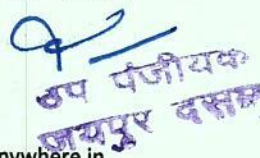 उप पंजीयक
जयपुर
nywhere.in